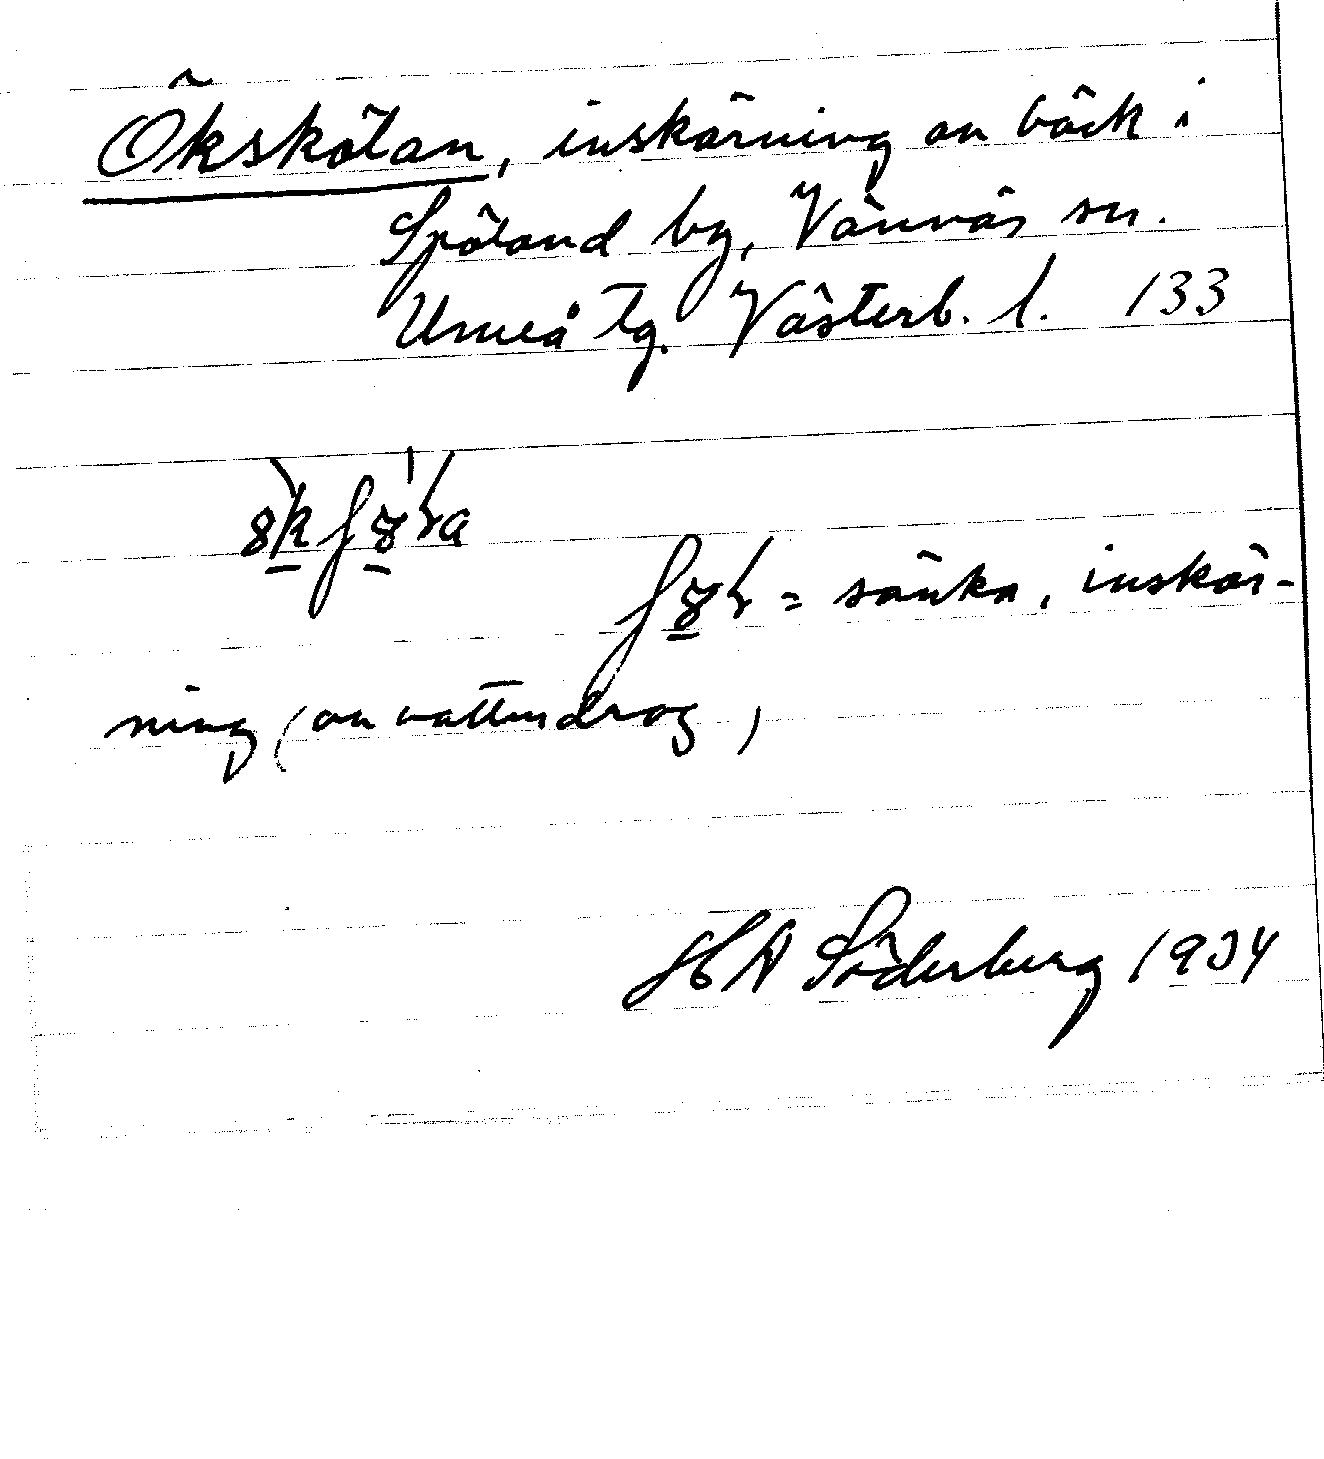 Ökskölan, inskärning av bäck i
Spöland by, Vännäs sn.
Umeå tg. Västerb. l. 133
= sänka, inskär-
ning (av vattendrag)
H A Söderberg 1934